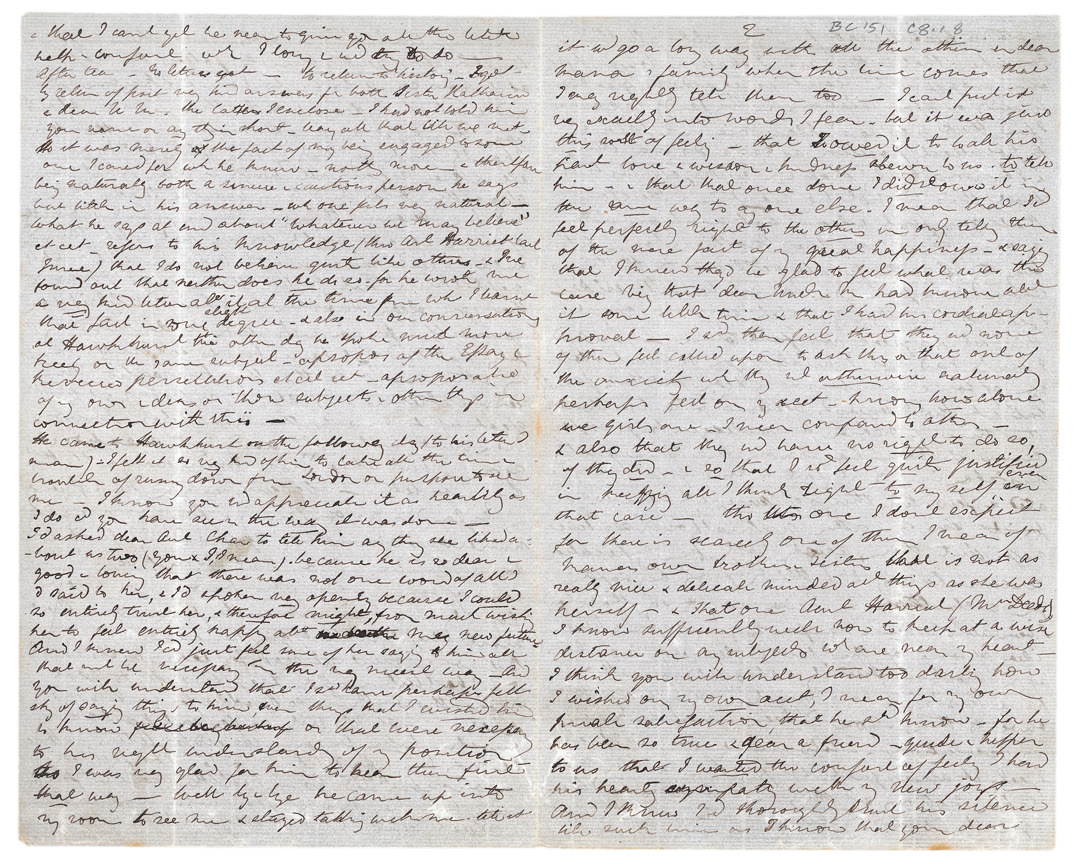 that I can't yet be near to give you all the little
help & comfort wh I long & to do —
After tea — No letters yet — to return to history — I got
by return of post very kind answers fr both Sister Katharine
& dear U. W. the latter I enclose — I had not told him
your name or anything short — way all that till we met —
So it was merely the fact of my being engaged to some
one I cared for wh he knew — nothg more — & therefore
being naturally both a sincere & cautious person he says
but little in his answer — wh one feels very natural —
what he says at end about "whatever we may believe"
et cet refers to his knowledge (thro Aut Harriet last
June) that I do not believe quite like others — & I've
found out that neither does he do so — for he wrote me
a very kind letter abt it at the time fm wh I learnt
that fact in some slight degree — & also in our conversations
at Hawkhurst the other day he spoke much more
freely on the same subject — apropos of the Essay &
Reviews persecutions et cet cet — apropos also
of my own ideas on those subjects & other thgs in
connection with this —
He came to Hawkhurst on the following day (to his letter I
mean) — I felt it so very kind of him to take all the time &
trouble of running down from London on purpose to see
me — I know you wd appreciate it as heartily as
I do if you have seen the way it was done —
I'd asked dear Aut Char to tell him any thg she liked a-
-bout us two (you & I I mean) because he is so dear &
good & loving that there was not one word of all
I'd said to her, & I'd spoken very openly because I could
so entirely trust her, & therefore might, from much wishg
her to feel entirely happy abt me & my new future
And I knew I'd just feel sure of her saying to him all
that wd be necessary in the very nicest way — And
you will understand that I shd have perhaps felt
shy of saying thgs to him even thgs that I wished him
to know or that were necessary
to his right understandg of my position
So I was very glad for him to hear them first
that way — Well by & bye he came up into
my room to see me & stayed talking with me tête à t
2
BC 151 C8.1.8
it wd go a long way with all the others in dear
Mama's family when the time comes that
I may rightly tell them too — I can't put it
very exactly into words I fear — but it was just
this sort of feelg — that I owed it to Walk his
great love & wisdom & kindness shewn to us — to tell
him — & that that once done I didn't owe it in
the same way to any one else. I mean that I'd
feel perfectly right to the others in only tellg them
of the mere fact of my great happiness — & sayg
that I knew they'd be glad to feel what was the
case viz that dear Uncle W had known abt
it some little time & that I had his cordial ap-
proval — I shd then feel that they wd none
of them feel called upon to ask this or that out of
the anxiety wh they wd otherwise naturally
perhaps feel on my acct — knowing how alone
we girls are, I mean compared to others —
& also that they wd have no right to do so,
if they did — & so that I shd feel quite justified
in keeping all I think right to my self even in
that case — tho this one I don't expect
for there is scarcely one of them I mean of
Mama's own brothers & sisters that is not as
really nice & delicate minded abt things as she was
herself — & that one Aunt Harriet (Mrs Deedes)
I know sufficiently well how to keep at a wise
distance on any subjects wh are near my heart —
I think you will understand too darling how
I wished on my own acct, I mean for my own
private satisfaction that he shd know — for he
has been so true & dear a friend — guide & helper
to us that I wanted the comfort of feelg I had
his hearty sympathy with my new joys —
And I knew I'd thoroughly trust his silence
till such time as I know that you dear